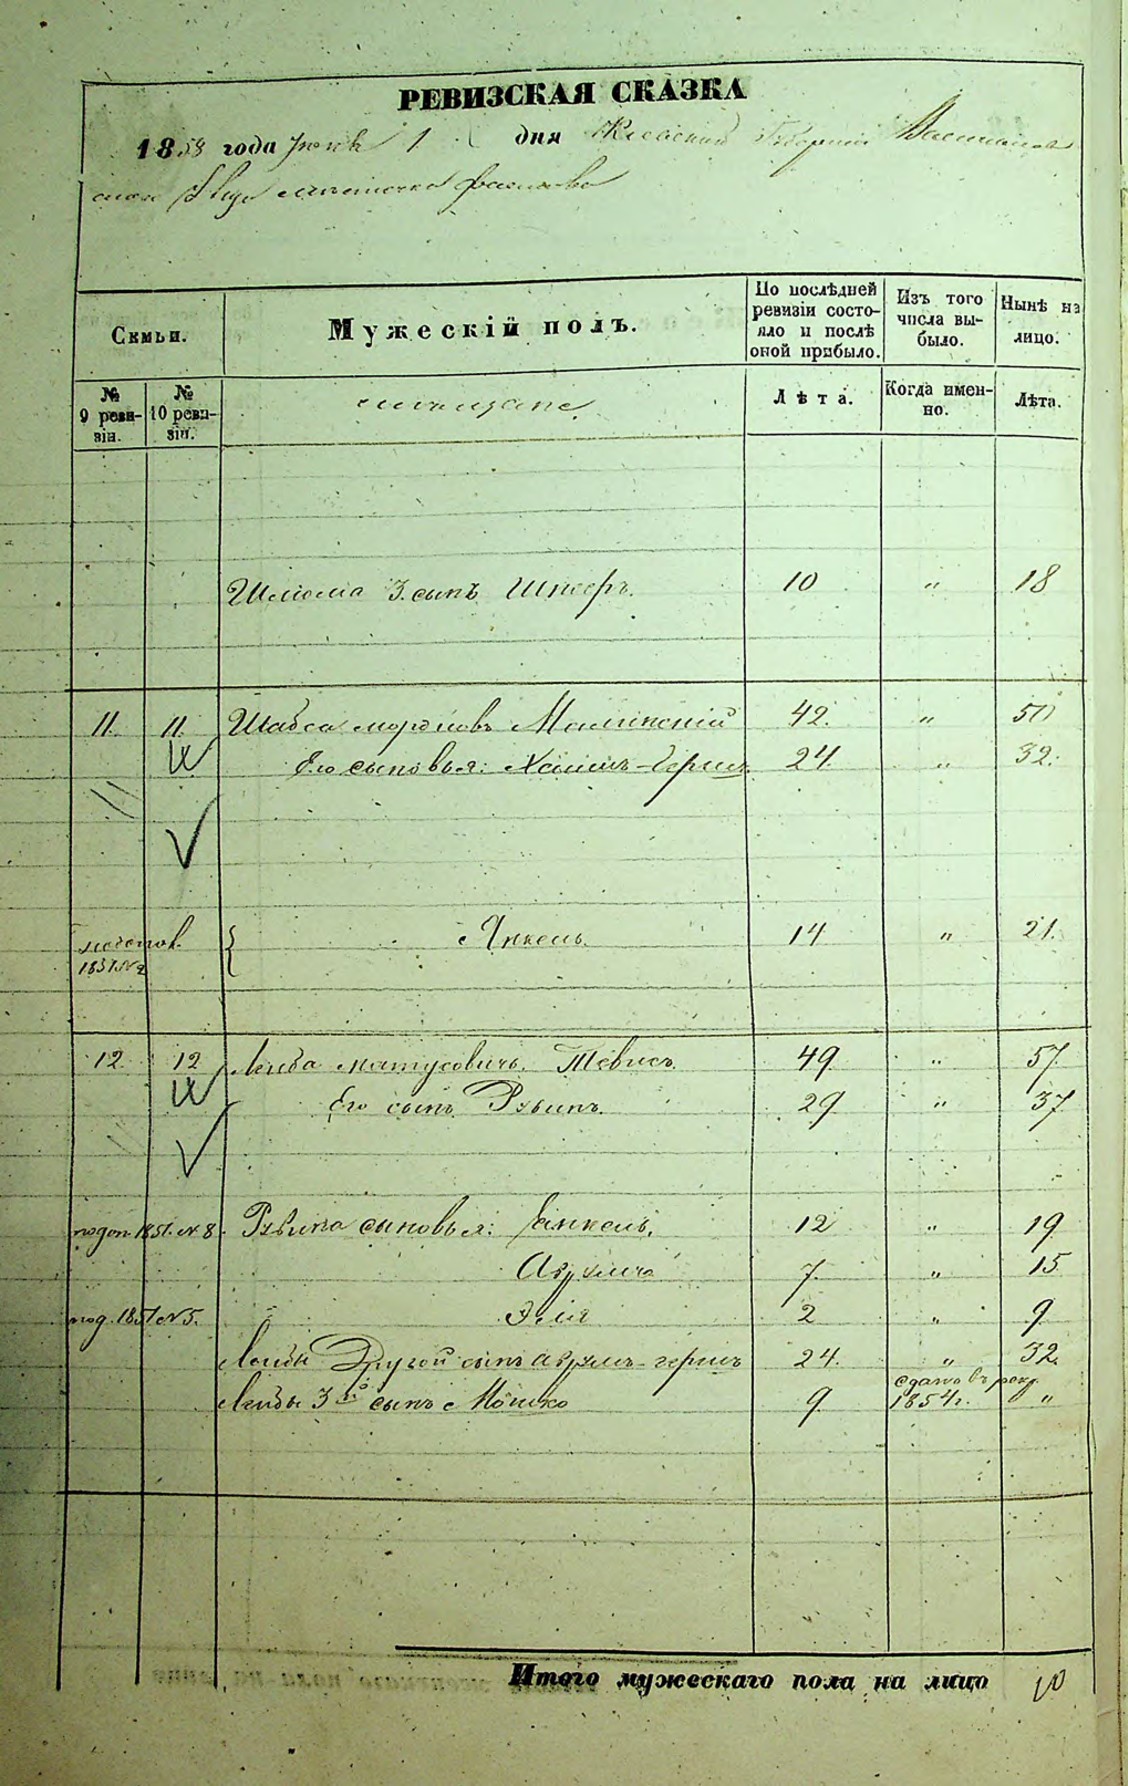 РЕВИЗСКАЯ СКАЗКА
1858 года Іюня 1 дня Кіевской Губерніи Васильков
скаго уезда местечка Фастова
Семьи.
Мужескій полъ.
По послѣдней ревизіи состояло и послѣ оной прибыло.
Изъ того числа выбыло.
Нынѣ на лицо.
№ 9 ревизіи.
№ 10 ревизіи.
Лѣта.
Когда именно.
Лѣта.
Шлиома 3. сынъ 10 " 18
11. 11. Шабса 42. " 50
Его сыновья: Хаимъ-Герш 24 " 32.
1851 №
Янкель 14 " 21.
12. 12 Лейба Матусовичъ Тевисъ 49 " 57
Его сынъ Рувинъ. 29 " 37
подоп. 1851. № 8. Рувина сыновья: Янкель, 12 " 19
Аврумъ 7. " 15
под. 1851 № 5. Эля 2 " 9
Лейбы Другой сынъ Аврумъ-герш 24. " 32.
Лейбы 3й сынъ Мошко 9 сдано въ рекр. 1854 г. "
Итого мужескаго пола на лицо 10